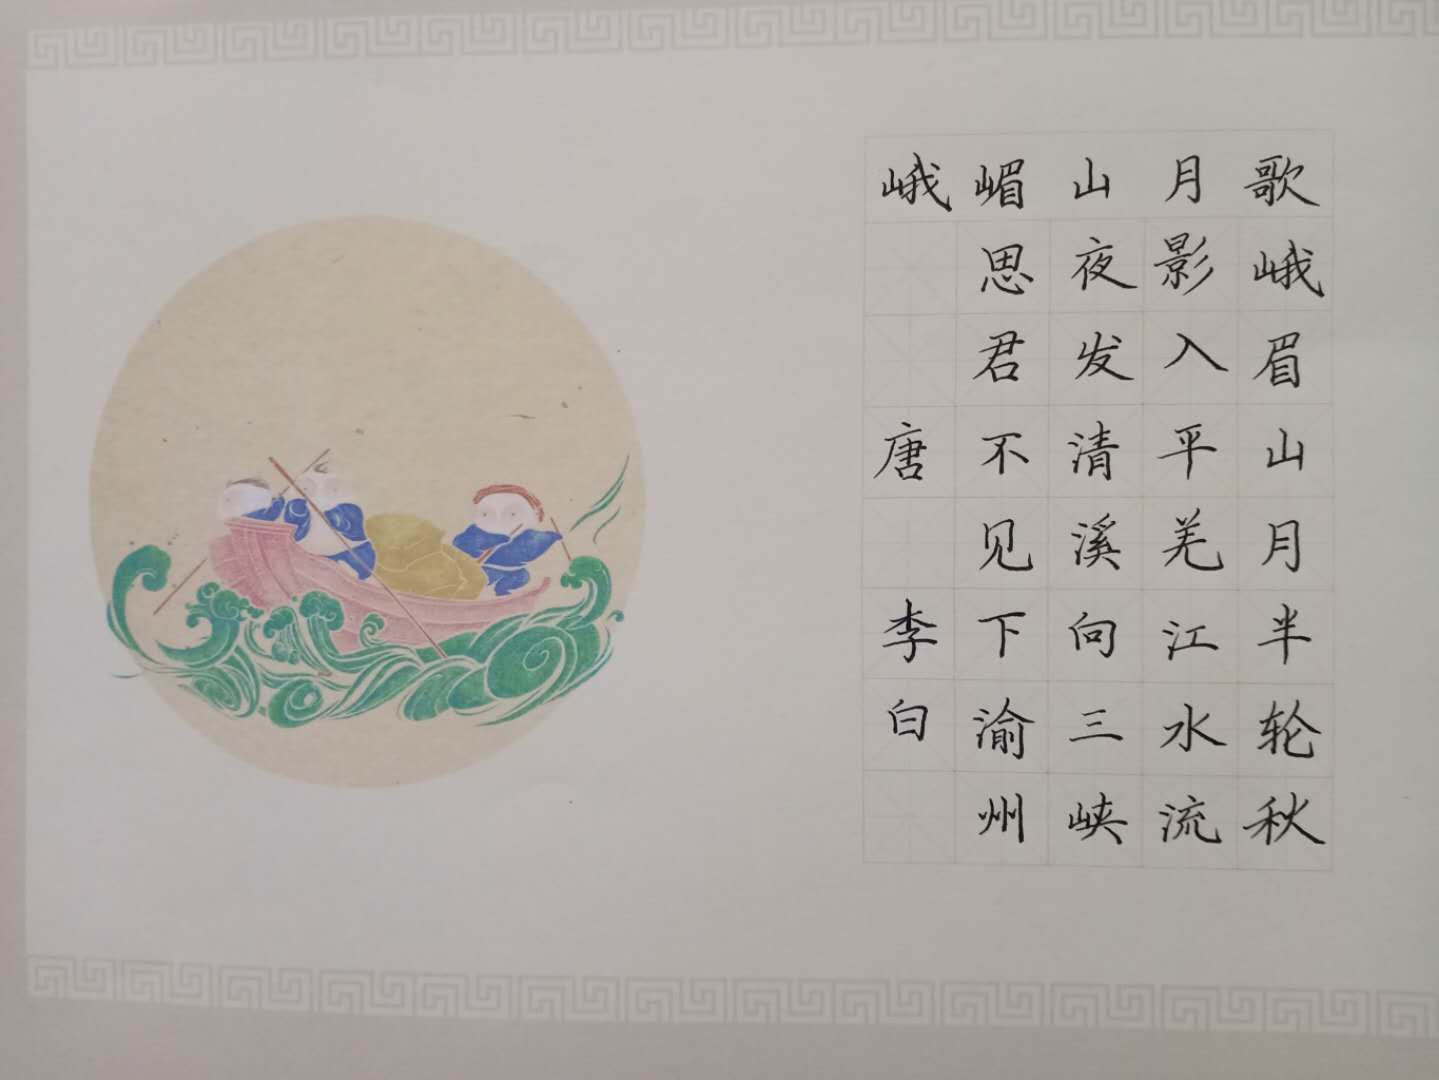 峨嵋山月歌
峨眉山月半轮秋
影入平羌江水流
夜发清溪向三峡
思君不见下渝州
唐 李白